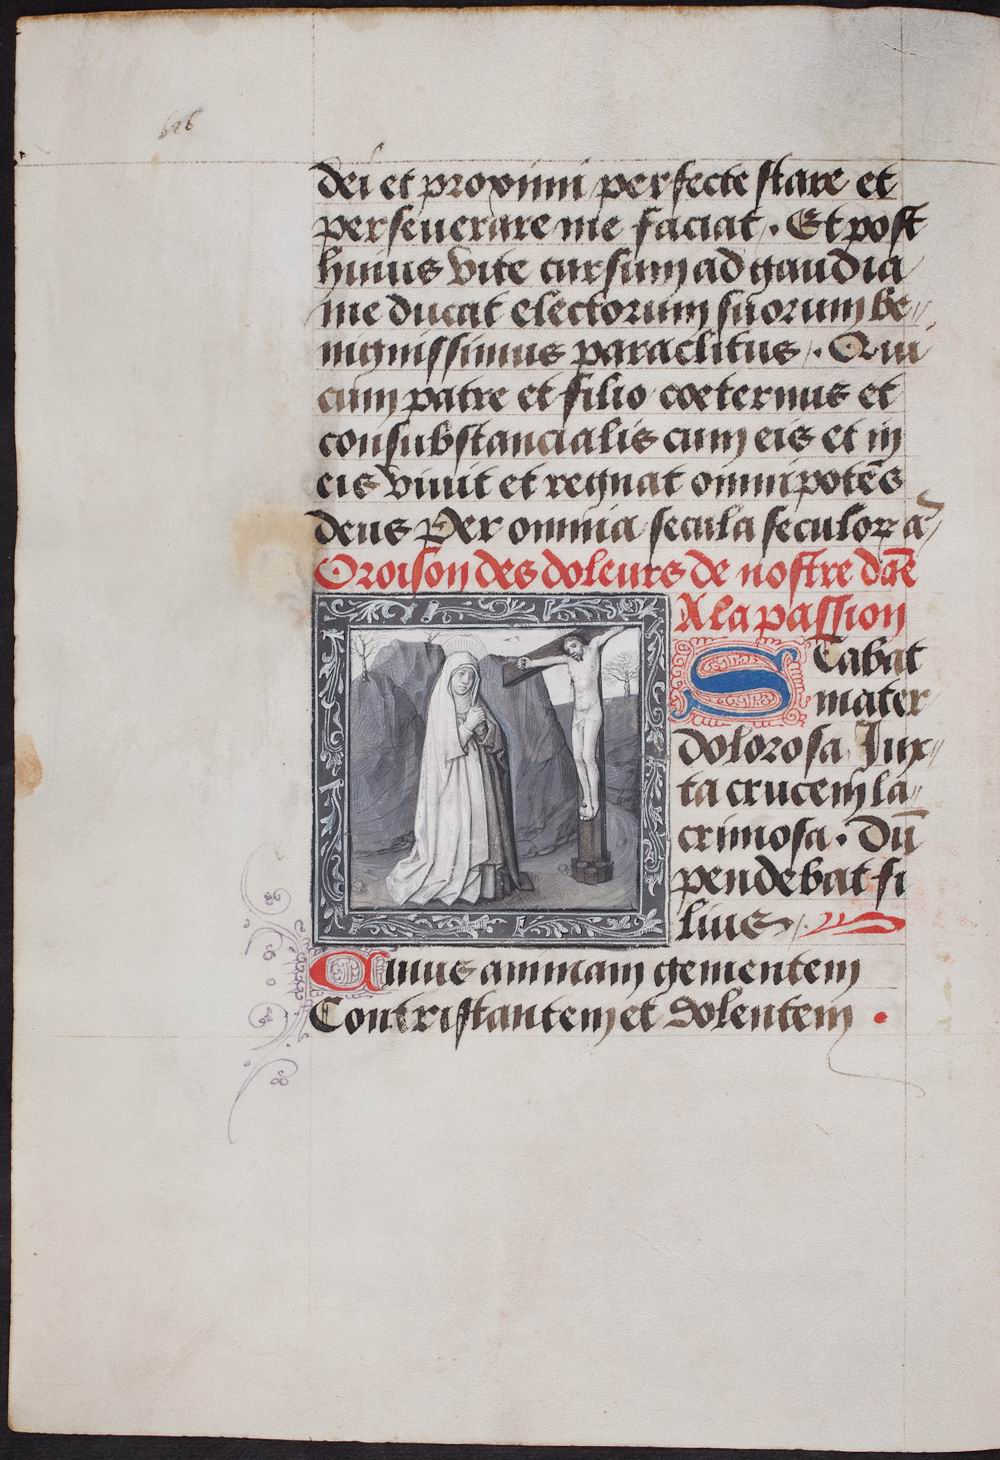 626
dei et proximi perfecte stare et
perseuerare me faciat. Et post
huius vite cursum ad gaudia
me ducat electorum suorum be//
nignissimus paraclitus. Qui
cum patre et filio coeternus et
consubstancialis cum eis et in
eis viuit et regnat omnipotēs
deus Per omnia secula seculor a
Oroison des doleurs de nostre dāe
A la passion
Stabat
mater
dolorosa Jux//
ta crucem la//
crimosa. Dū
pendebat fi
lius
Cuius animam gementem
Contristantem et dolentem.